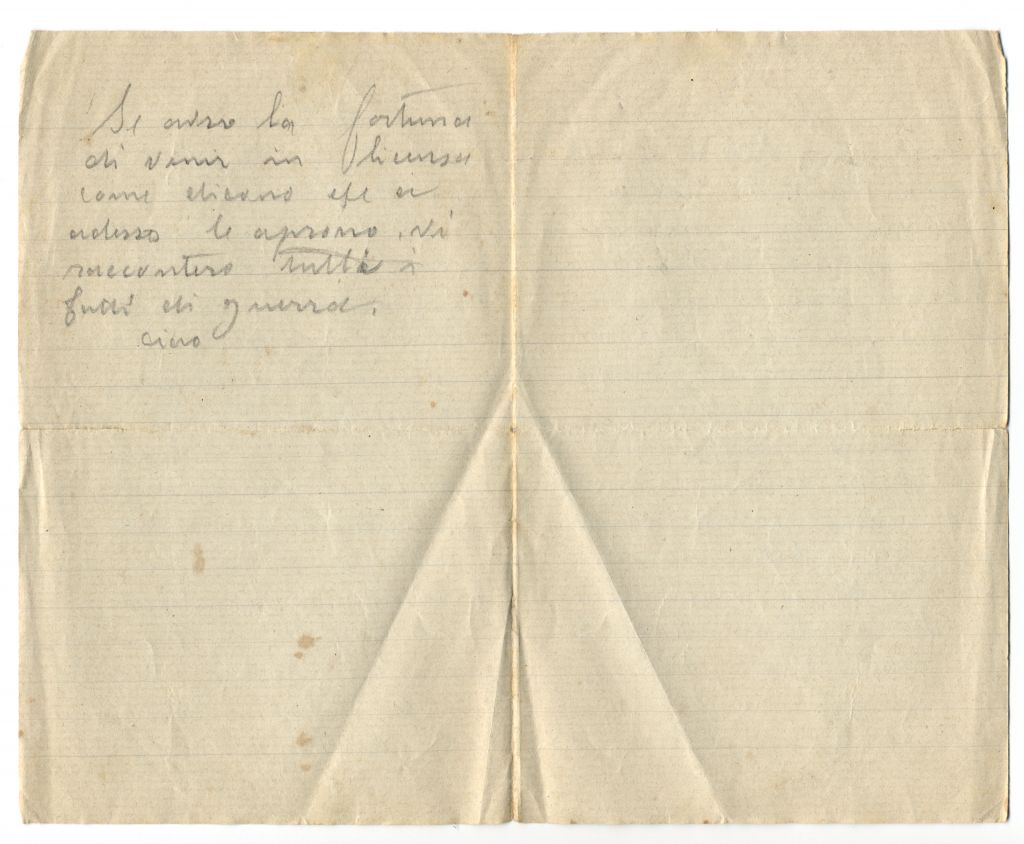 Se avro la fortuna
di venir in licensa
come dicano che a
adesso le aprono, vi
raccontero tutti i
fatti di guerra.
ciao